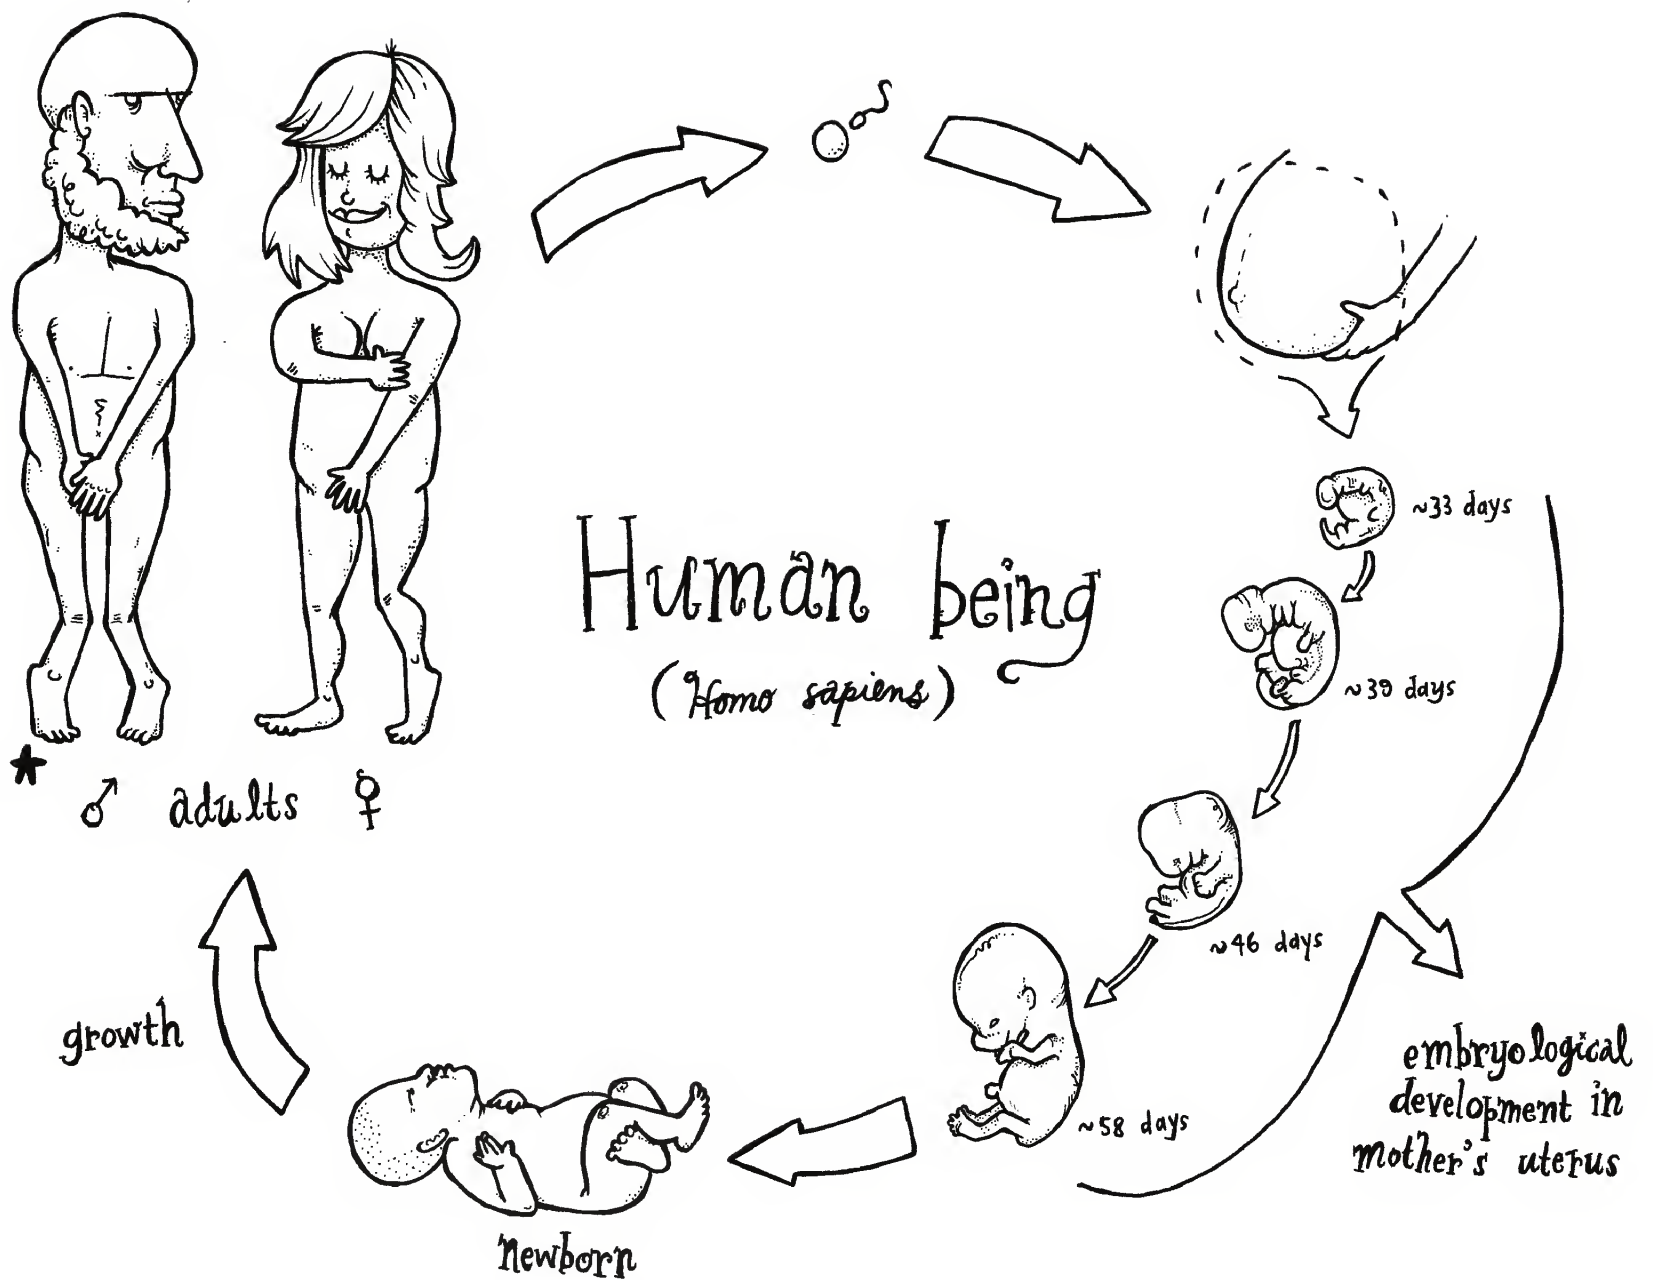 Human being
(Homo sapiens)
♂ adults ♀
~33 days
~39 days
~46 days
~58 days
embryological
development in
mother's uterus
newborn
growth